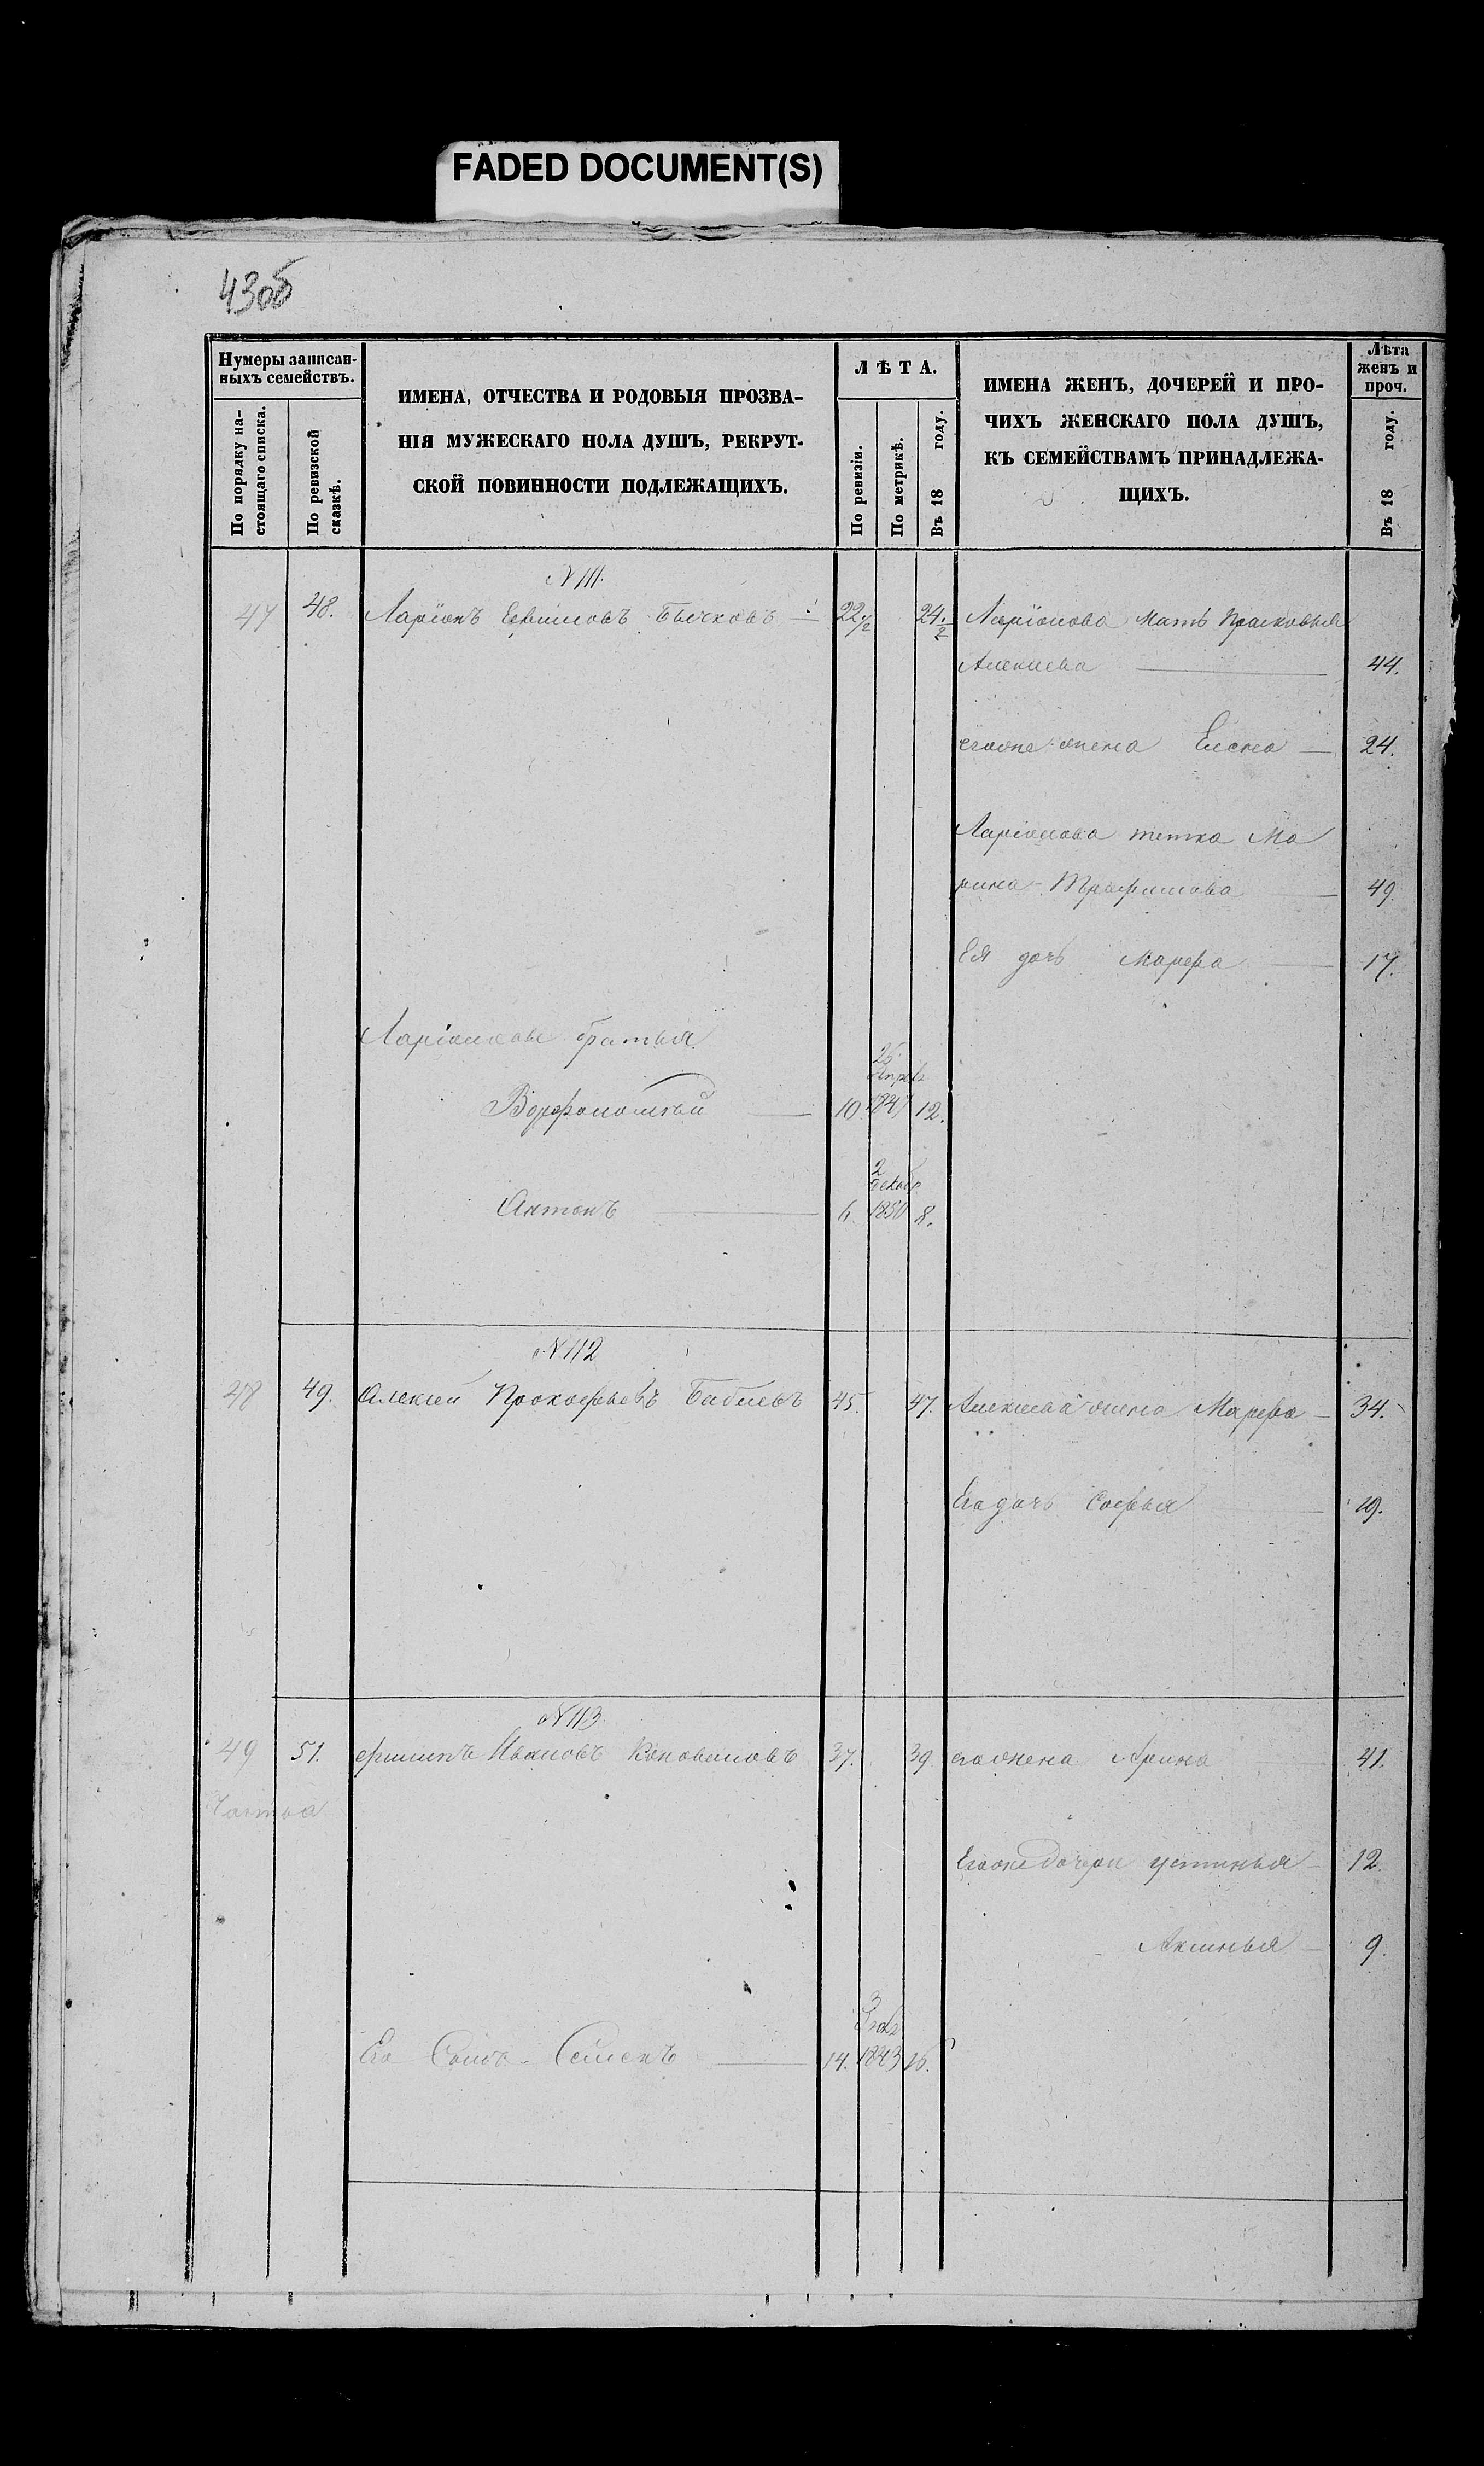 FADED DOCUMENT(S)
430б
Нумеры записан-
ныхъ семействъ.
По порядку на-
стоящаго списка.
По ревизской
сказкѣ.
ИМЕНА, ОТЧЕСТВА И РОДОВЫЯ ПРОЗВА-
НІЯ МУЖЕСКАГО ПОЛА ДУШЪ, РЕКРУТ-
СКОЙ ПОВИННОСТИ ПОДЛЕЖАЩИХЪ.
ЛѢТА.
По ревизіи.
По метрикѣ.
Въ 18 году.
ИМЕНА ЖЕНЪ, ДОЧЕРЕЙ И ПРО-
ЧИХЪ ЖЕНСКАГО ПОЛА ДУШЪ,
КЪ СЕМЕЙСТВАМЪ ПРИНАДЛЕЖА-
ЩИХЪ.
Лѣта
женъ и
проч.
Въ 18 году.
N 111.
47 48. Ларіонъ Бычковъ 22 1/2 24. 1/2 Ларіонова мать Прасковья
Алексіева 44.
егоже жена Елена 24.
Ларіонова тетка Ма
рина Трафимова 49
Ея дочь Марфа 17.
Ларіоновы братья
25
Апрель
Ворфоломѣй 10 1847 12.
2
Декаб
Антонъ 6 1850 8.
N 112
48 49. Алексѣй Прокофьевъ 45. 47. Алексѣева жена Марфа 34.
Его дочь Софья 19.
N 113.
49 51. Филипъ Ивановъ Коноваловъ 37. 39 его жена Арина 41.
Егоже дочери Устинья 12.
Аксинья 9.
3
Его Сынъ Семенъ 14. 1843 16.